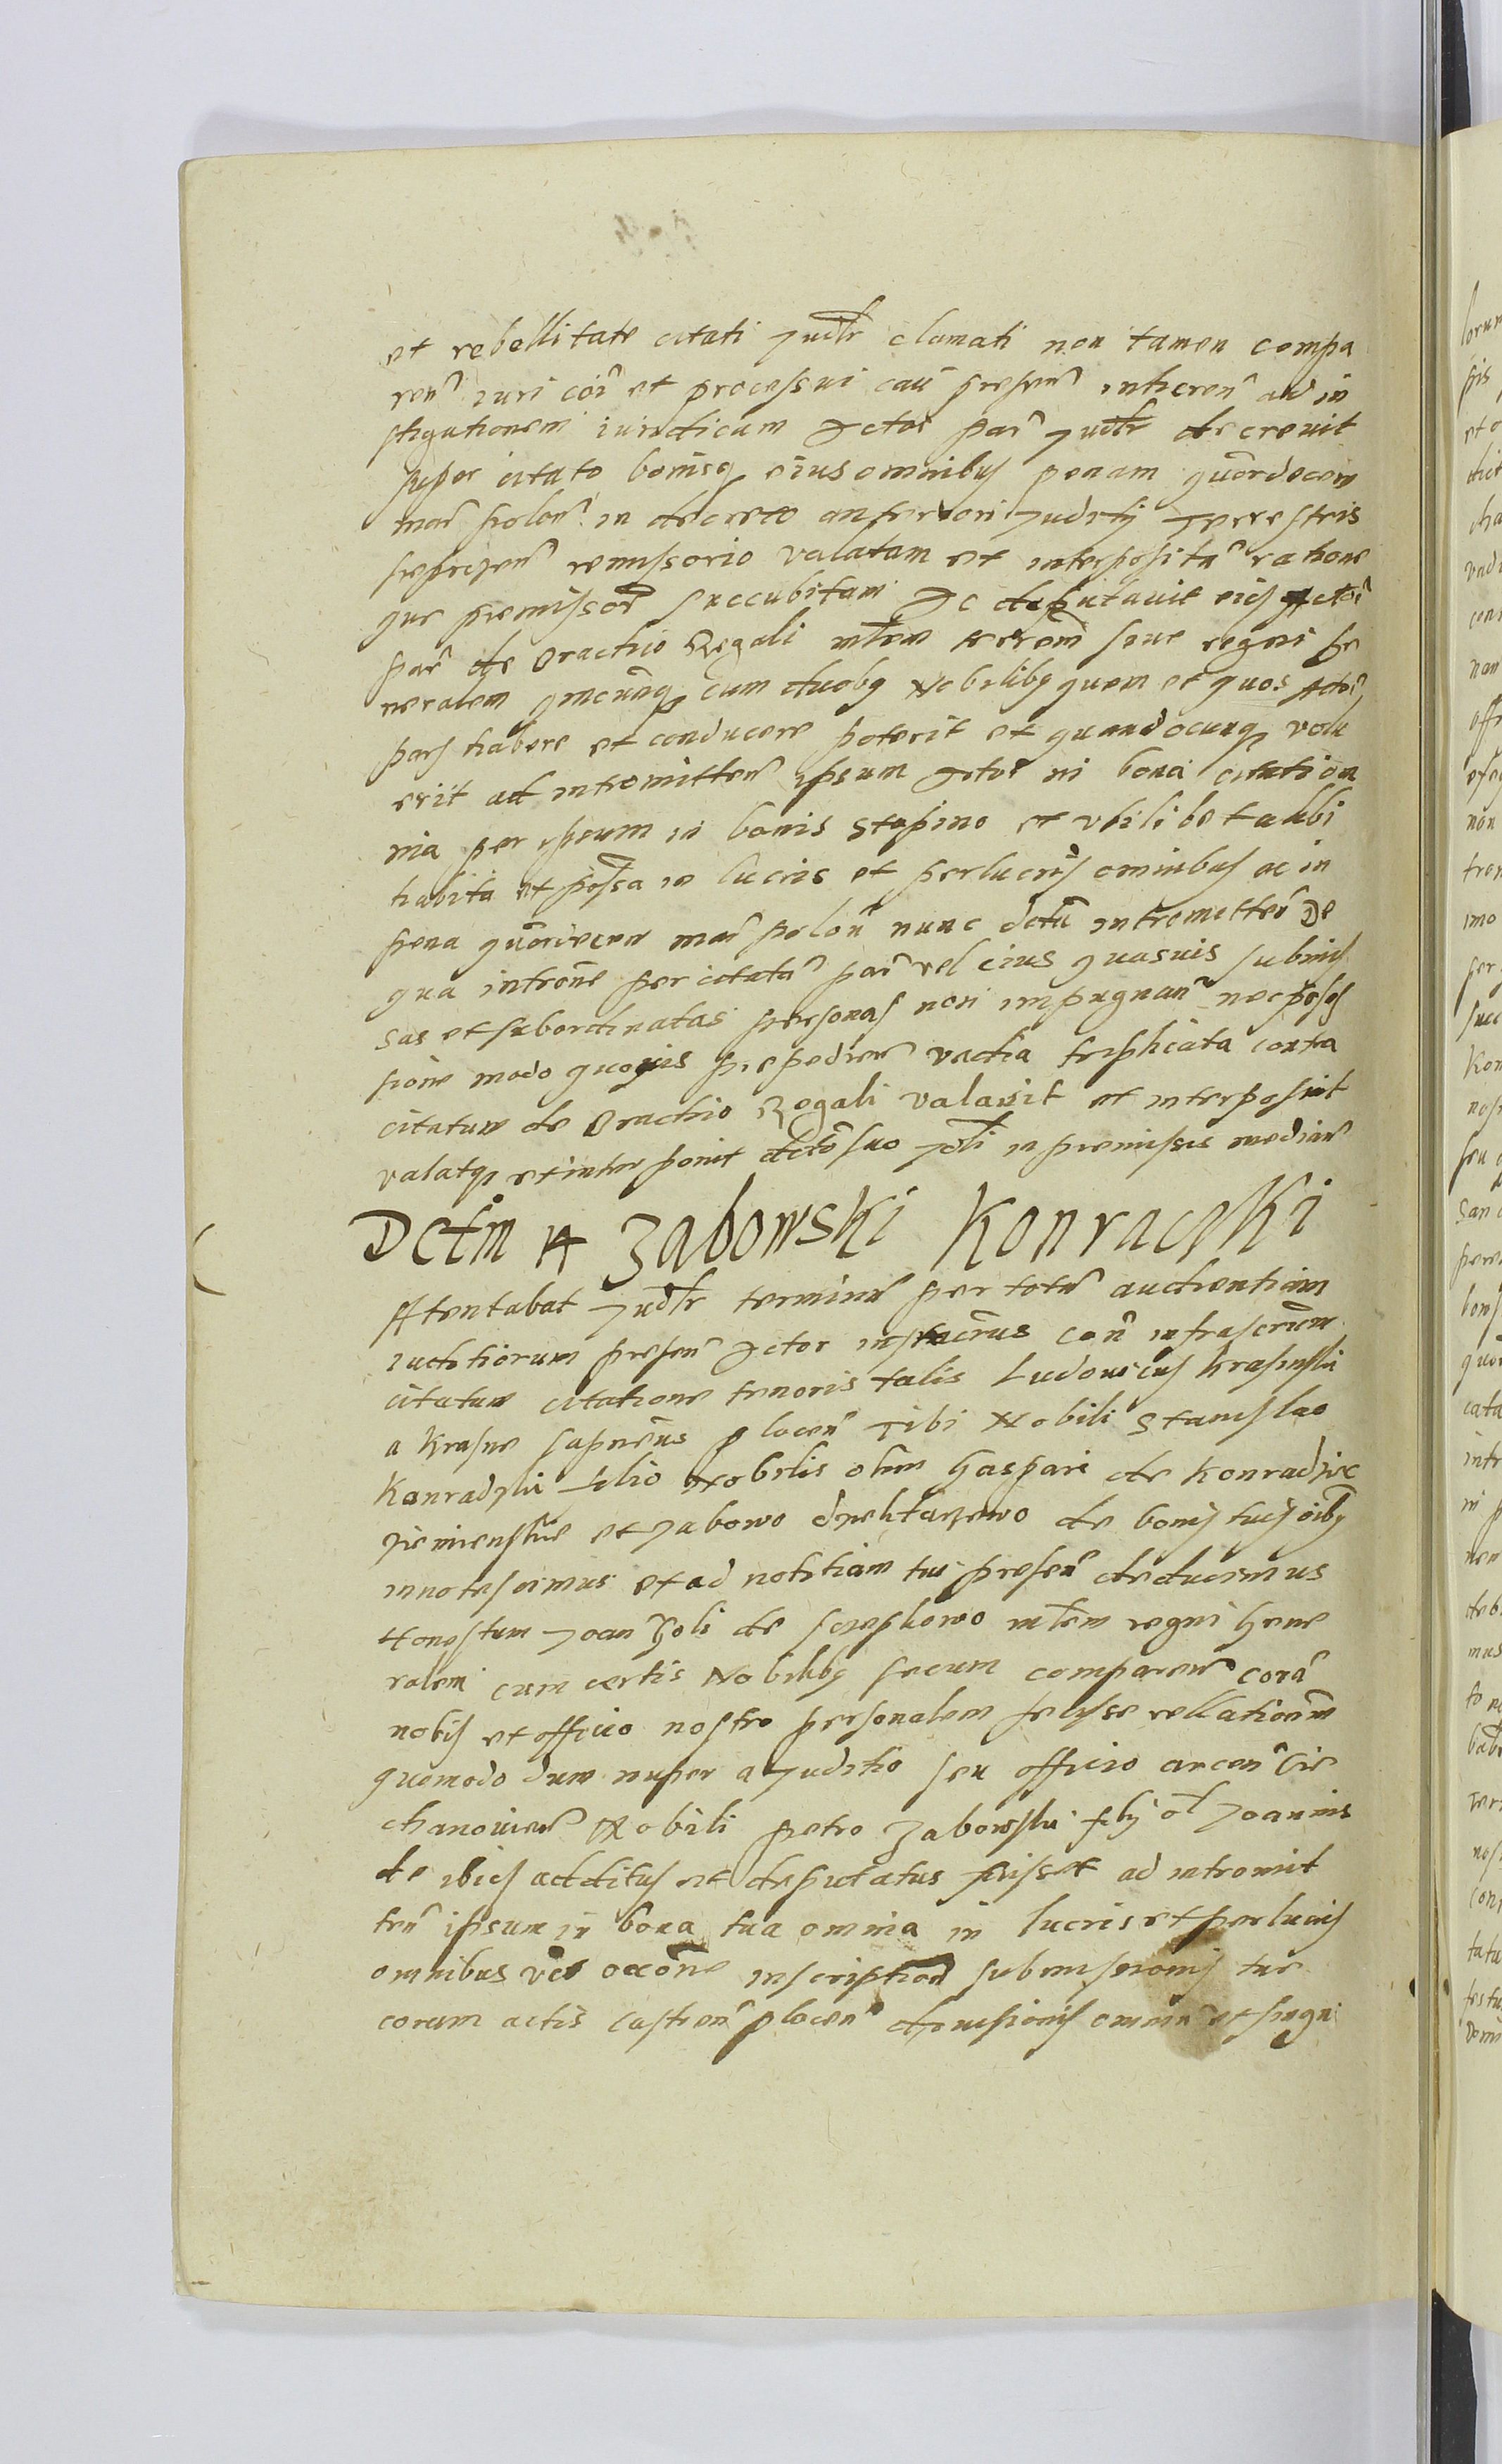 et rebellitate citati Judlr clamati non tamen compa
ren iuri coi et processui cau presen inheren ad in
stigationem iuridicam Actor par Judlr decreuit
super citato bonisq eius omnibus penam quordecem
mar polon in decreto anteriori Juditij Terrestris
remissorio valatam et interposita ratione
que premissor succubitam Ac deputauit eid Actor
par de brachio Regali mlem seu regni Ge
neralem quecunq cum duobq Nobilibq quem et quos Actor
pars habere et conducere poterit et quandocunq volu
erit ad intromitten ipsum Actor in bona citati om
nia per ipsum in bonis Stopino et vbilibet alibi
habita et possa in lucris et perlucris omnibus ac in
pena quordecem mar polon nunc dctu intromitten De
qua introne per citata par vel eius quasuis submis
sas et subordinatas personas non impugnan nec posses
sione modo quouis prepedien vadia triplicata contra
citatum de brachio Regali valauit et interposuit
valatq et interponit dcto suo Jdli in premissis median
Dctm A Zabowski Konraczki
Attentabat Judlr terminu per tota audientiam
iuditiorum presen Actor con infrascrum
citatum citatione tenoris talis Ludouicus Krasinski
a Krasne Capneus plocen Tibi Nobili Stanislao
Konradzki filio Nobilis olim Gaspari de Konradziec
et Zabowo de bonis tuis oibq
innotescimus et ad notitiam tui presen deducimus
Honestum Joan de mlem regni Gene
ralem cum certis Nobilibq secum comparen cora
nobis et officio nostro personalem fecisse rellationem
quomodo dum nuper a Juditio seu officio arcen Cie
chanouien Nobili petro Zabowski filij ol Joannis
de ibid additus et deputatus fuisset ad intromit
ten ipsum in bona tua omnia in lucris et perlucris
omnibus occone inscription submissionis tue
coram actis Castren plocen omniu et singu